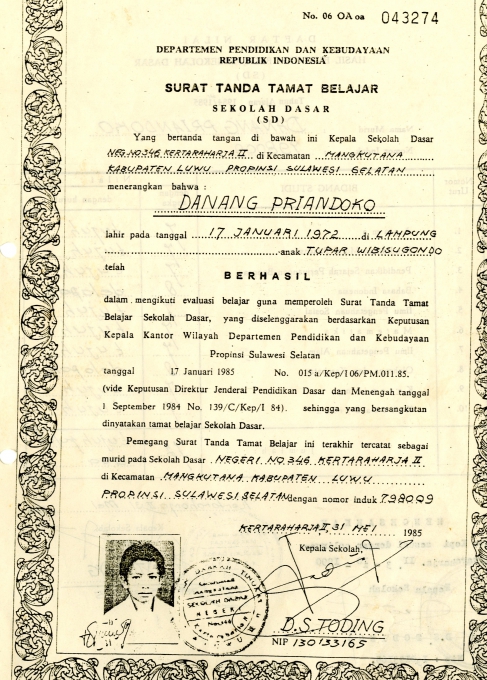 No. 06 OA oa 043274
DEPARTEMEN PENDIDIKAN DAN KEBUDAYAAN
REPUBLIK INDONESIA
SURAT TANDA TAMAT BELAJAR
SEKOLAH DASAR
(SD)
Yang bertanda tangan di bawah ini Kepala Sekolah Dasar
NEG. NO 346 KERTARAHARJA II di Kecamatan MANGKUTANA
KABUPATEN LUWU PROPINSI SULAWESI SELATAN
menerangkan bahwa :
DANANG PRIANDOKO
lahir pada tanggal 17 JANUARI 1972 di LAMPUNG
anak TUPAR WIBISUGONDO
telah
BERHASIL
dalam mengikuti evaluasi belajar guna memperoleh Surat Tanda Tamat
Belajar Sekolah Dasar, yang diselenggarakan berdasarkan Keputusan
Kepala Kantor Wilayah Departemen Pendidikan dan Kebudayaan
Propinsi Sulawesi Selatan
tanggal 17 Januari 1985 No. 015 a/Kep/I06/PM.011.85.
(vide Keputusan Direktur Jenderal Pendidikan Dasar dan Menengah tanggal
1 September 1984 No. 139/C/Kep/I 84). sehingga yang bersangkutan
dinyatakan tamat belajar Sekolah Dasar.
Pemegang Surat Tanda Tamat Belajar ini terakhir tercatat sebagai
murid pada Sekolah Dasar NEGERI NO 346 KERTARAHARJA II
di Kecamatan MANGKUTANA KABUPATEN LUWU
PROPINSI SULAWESI SELATAN dengan nomor induk 798009
KERTARAHARJA II, 31 MEI 1985
Kepala Sekolah,
SEKOLAH DASAR
D.S. TODING
NIP 130133165